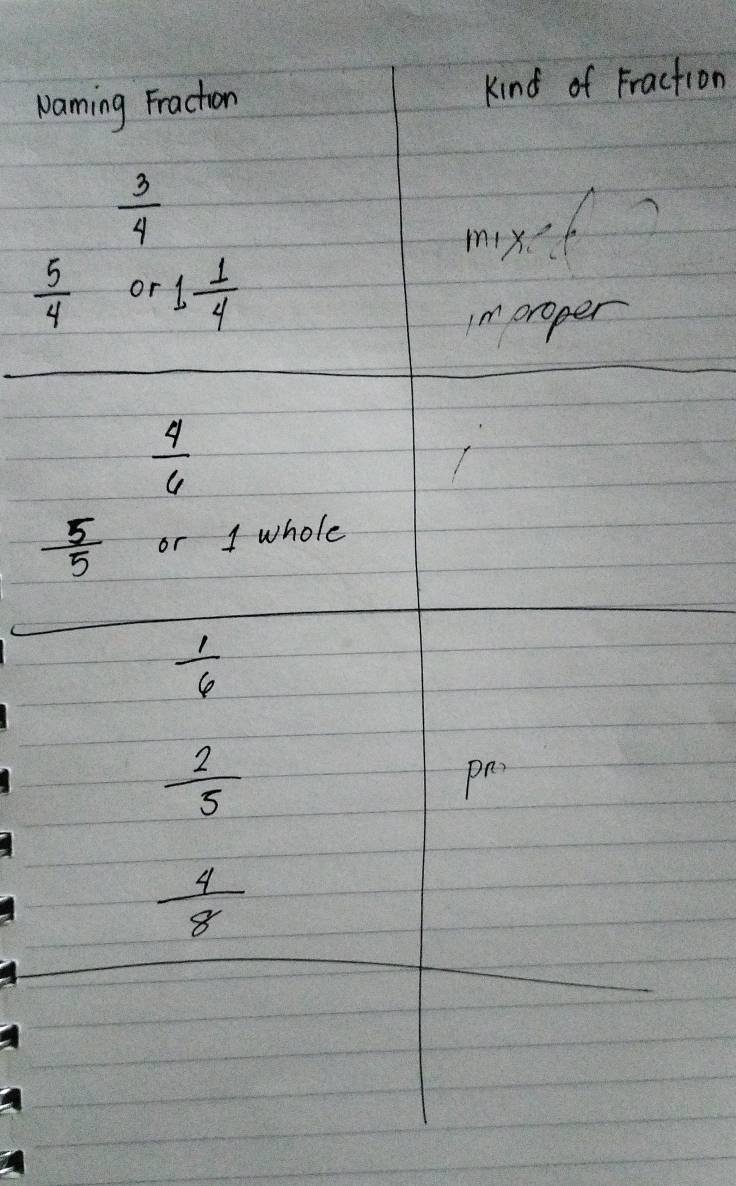 Naming Fraction
Kind of Fraction
3/4
mixed
5/4 or 1 1/4
improper
4/6
5/5 or 1 whole
1/6
2/5
4/8